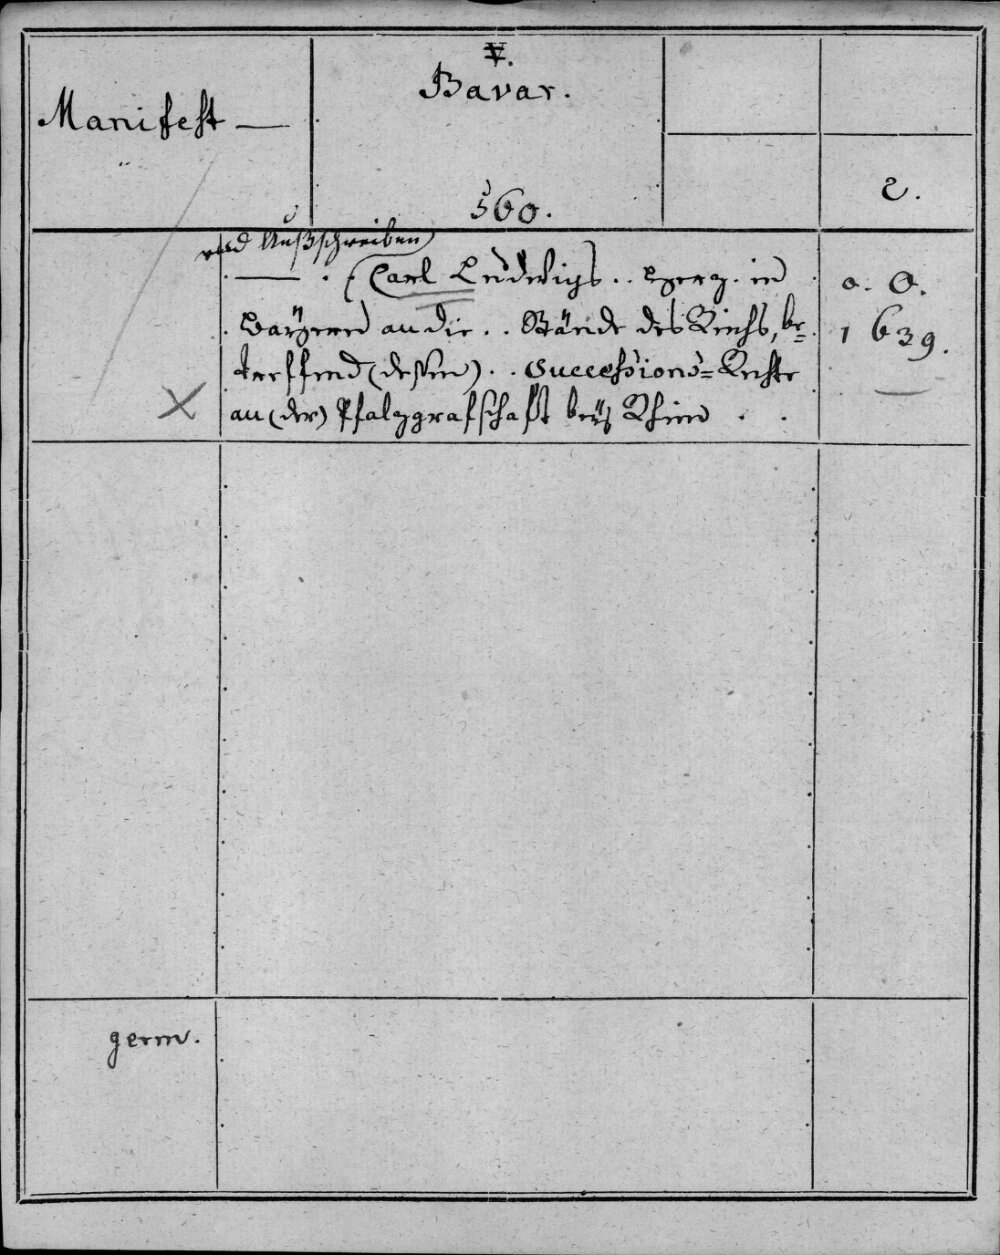 Manifest —
V.
Bavar.
560.
2.
und Außschreiben
— . (Carl Ludwigs .. Herz. in
Bayern an die .. Stände des Reichs, be=
treffend (dessen) .. Successions=Rechte
an (der) Pfalzgrafschaft bey Rhein . .
o. O.
1639.
X
germ.